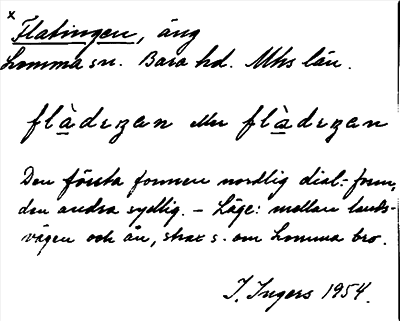 x
Flabingen, äng
Lomma sn. Bara hd. Mhs län.
flàdıꞃȥen eller flàdıꞃȥen
Den första formen nordlig dial.-form,
den andra sydlig. – Läge: mellan lands-
vägen och ån, strax s. om Lomma bro.
I. Ingers 1954.